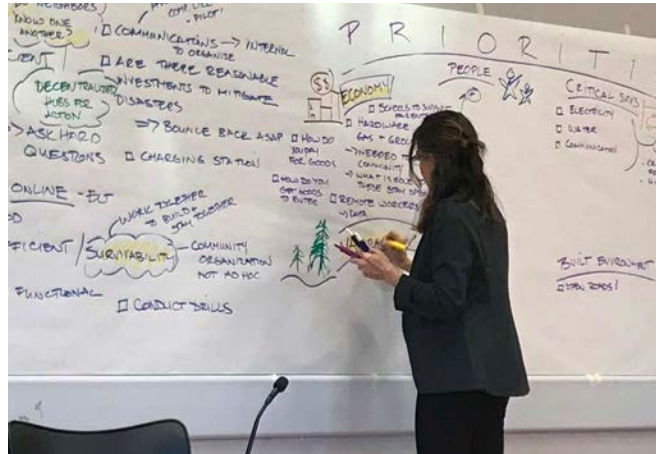 DO NEIGHBORS
KNOW ONE
ANOTHER?
- PILOT!
☐ COMMUNICATIONS → INTERNAL
TO ORGANIZE
☐ ARE THERE REASONABLE
INVESTMENTS TO MITIGATE
DISASTERS
DECENTRALIZED
HUBS FOR
ACTION
⇒ BOUNCE BACK ASAP
→ ASK HARD
QUESTIONS
☐ CHARGING STATION!
ONLINE
WORK TOGETHER
TO BUILD &
STAY TOGETHER
SURVIVABILITY
COMMUNITY
ORGANIZATION
NOT AD HOC
FUNCTIONAL
☐ CONDUCT DRILLS
PRIORITI
$$
ECONOMY
☐ SCHOOLS TO SUPPORT
☐ HARDWARE
GAS +
→ NEEDED
COMMUNITY
→ WHAT IS
THESE STAY
☐ HOW DO
YOU PAY
FOR GOODS
☐ HOW DO YOU
GET GOODS
TO ENTER
☐ REMOTE WORKERS
→ DATA
PEOPLE
CRITICAL SYS
☐ ELECTRICITY
☐ WATER
☐ COMMUNICATION
BUILT ENVIRONMENT
☐ OPEN ROADS!